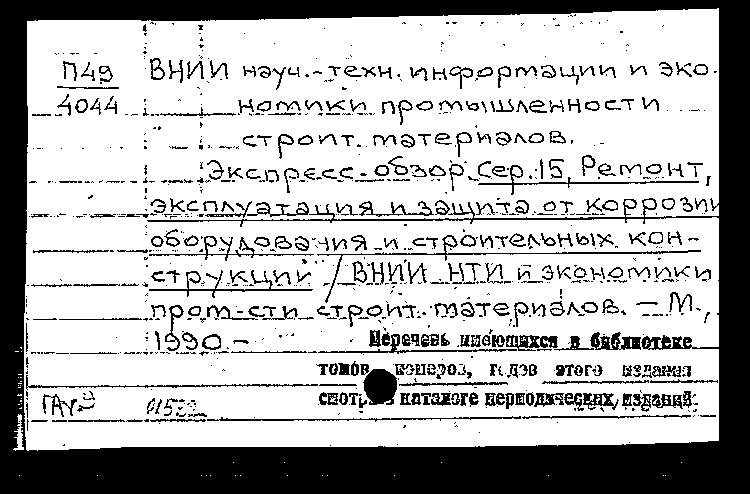 П49
4044
ВНИИ науч.-техн. информации и эко-
номики промышленности
строит. материалов.
Экспресс-обзор. Сер. 15, Ремонт,
эксплуатация и защита от коррозии
оборудования и строительных кон-
струкций / ВНИИ НТИ и экономики
пром-сти строит. материалов. – М.,
1990. –
Перечень имеющихся в библиотеке
томов, номеров, годов этого издания
смотри в каталоге периодических изданий